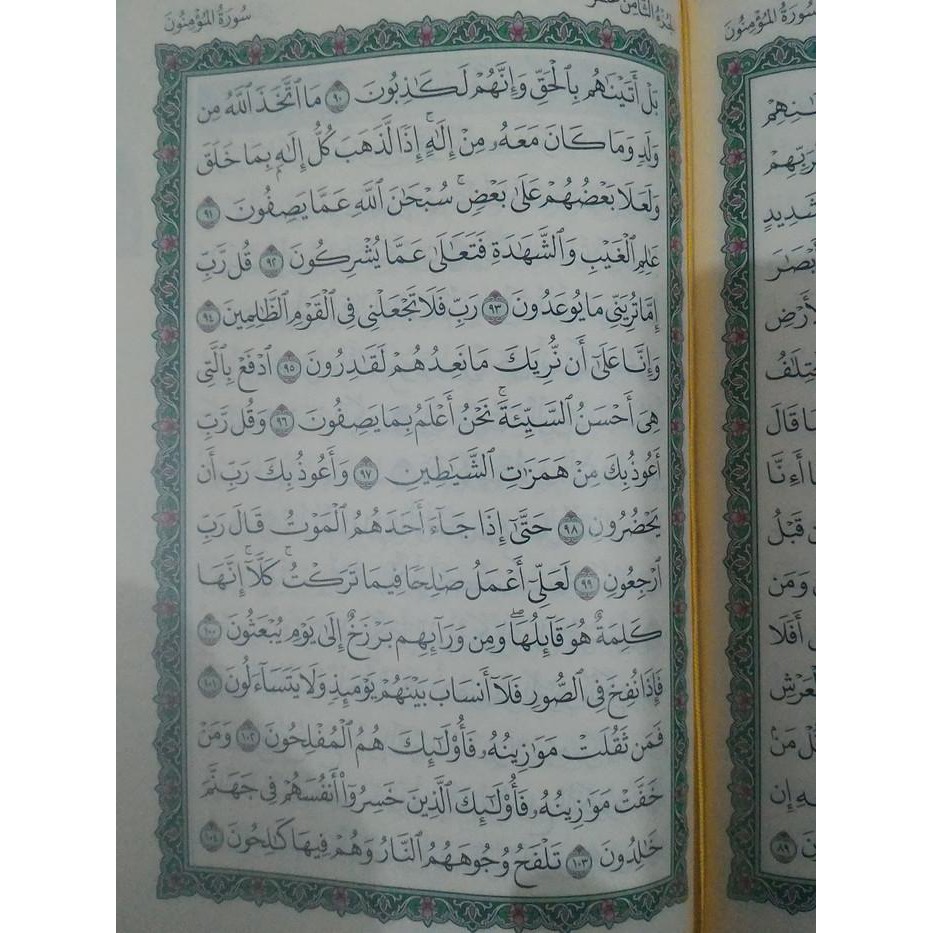 سُورَةُ المُؤۡمِنُونَ
بَلۡ أَتَيۡنَٰهُم بِٱلۡحَقِّ وَإِنَّهُمۡ لَكَٰذِبُونَ ٩٠ مَا ٱتَّخَذَ ٱللَّهُ مِن
وَلَدٖ وَمَا كَانَ مَعَهُۥ مِنۡ إِلَٰهٍۚ إِذٗا لَّذَهَبَ كُلُّ إِلَٰهِۭ بِمَا خَلَقَ
وَلَعَلَا بَعۡضُهُمۡ عَلَىٰ بَعۡضٖۚ سُبۡحَٰنَ ٱللَّهِ عَمَّا يَصِفُونَ ٩١
عَٰلِمِ ٱلۡغَيۡبِ وَٱلشَّهَٰدَةِ فَتَعَٰلَىٰ عَمَّا يُشۡرِكُونَ ٩٢ قُل رَّبِّ
إِمَّا تُرِيَنِّي مَا يُوعَدُونَ ٩٣ رَبِّ فَلَا تَجۡعَلۡنِي فِي ٱلۡقَوۡمِ ٱلظَّٰلِمِينَ ٩٤
وَإِنَّا عَلَىٰٓ أَن نُّرِيَكَ مَا نَعِدُهُمۡ لَقَٰدِرُونَ ٩٥ ٱدۡفَعۡ بِٱلَّتِي
هِيَ أَحۡسَنُ ٱلسَّيِّئَةَۚ نَحۡنُ أَعۡلَمُ بِمَا يَصِفُونَ ٩٦ وَقُل رَّبِّ
أَعُوذُ بِكَ مِنۡ هَمَزَٰتِ ٱلشَّيَٰطِينِ ٩٧ وَأَعُوذُ بِكَ رَبِّ أَن
يَحۡضُرُونِ ٩٨ حَتَّىٰٓ إِذَا جَآءَ أَحَدَهُمُ ٱلۡمَوۡتُ قَالَ رَبِّ
ٱرۡجِعُونِ ٩٩ لَعَلِّيٓ أَعۡمَلُ صَٰلِحٗا فِيمَا تَرَكۡتُۚ كَلَّآۚ إِنَّهَا
كَلِمَةٌ هُوَ قَآئِلُهَاۖ وَمِن وَرَآئِهِم بَرۡزَخٌ إِلَىٰ يَوۡمِ يُبۡعَثُونَ ١٠٠
فَإِذَا نُفِخَ فِي ٱلصُّورِ فَلَآ أَنسَابَ بَيۡنَهُمۡ يَوۡمَئِذٖ وَلَا يَتَسَآءَلُونَ ١٠١
فَمَن ثَقُلَتۡ مَوَٰزِينُهُۥ فَأُوْلَٰٓئِكَ هُمُ ٱلۡمُفۡلِحُونَ ١٠٢ وَمَنۡ
خَفَّتۡ مَوَٰزِينُهُۥ فَأُوْلَٰٓئِكَ ٱلَّذِينَ خَسِرُوٓاْ أَنفُسَهُمۡ فِي جَهَنَّمَ
خَٰلِدُونَ ١٠٣ تَلۡفَحُ وُجُوهَهُمُ ٱلنَّارُ وَهُمۡ فِيهَا كَٰلِحُونَ ١٠٤
سُورَةُ المُؤۡمِنُونَ
رَبِّهِمۡ
شَدِيدٍ
قَالَ
أَءِنَّا
قَبۡلُ
وَمَن
أَفَلَا
مَنۢ
إِن
٨٩